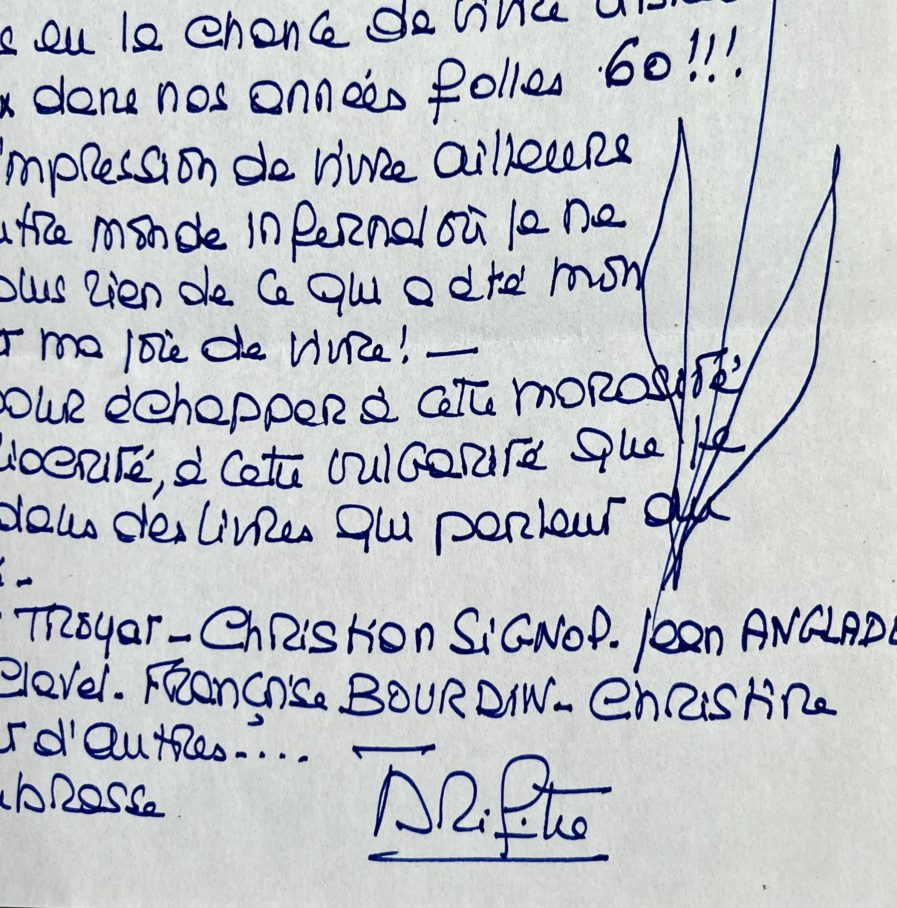 eu la chance de vivre
dans nos années folles 60!!!
impression de vivre ailleurs
utre monde infernal où je ne
plus rien de ce qui a été mon
ma joie de vivre! —
pour échapper à cette morosité
iocrité, à cette vulgarité que je
dans des livres qui parlent du
-
Troyat - Christian SIGNOL. Jean ANGLADE
Clavel. Françoise BOURDIN - Christine
d'autres....
brasse